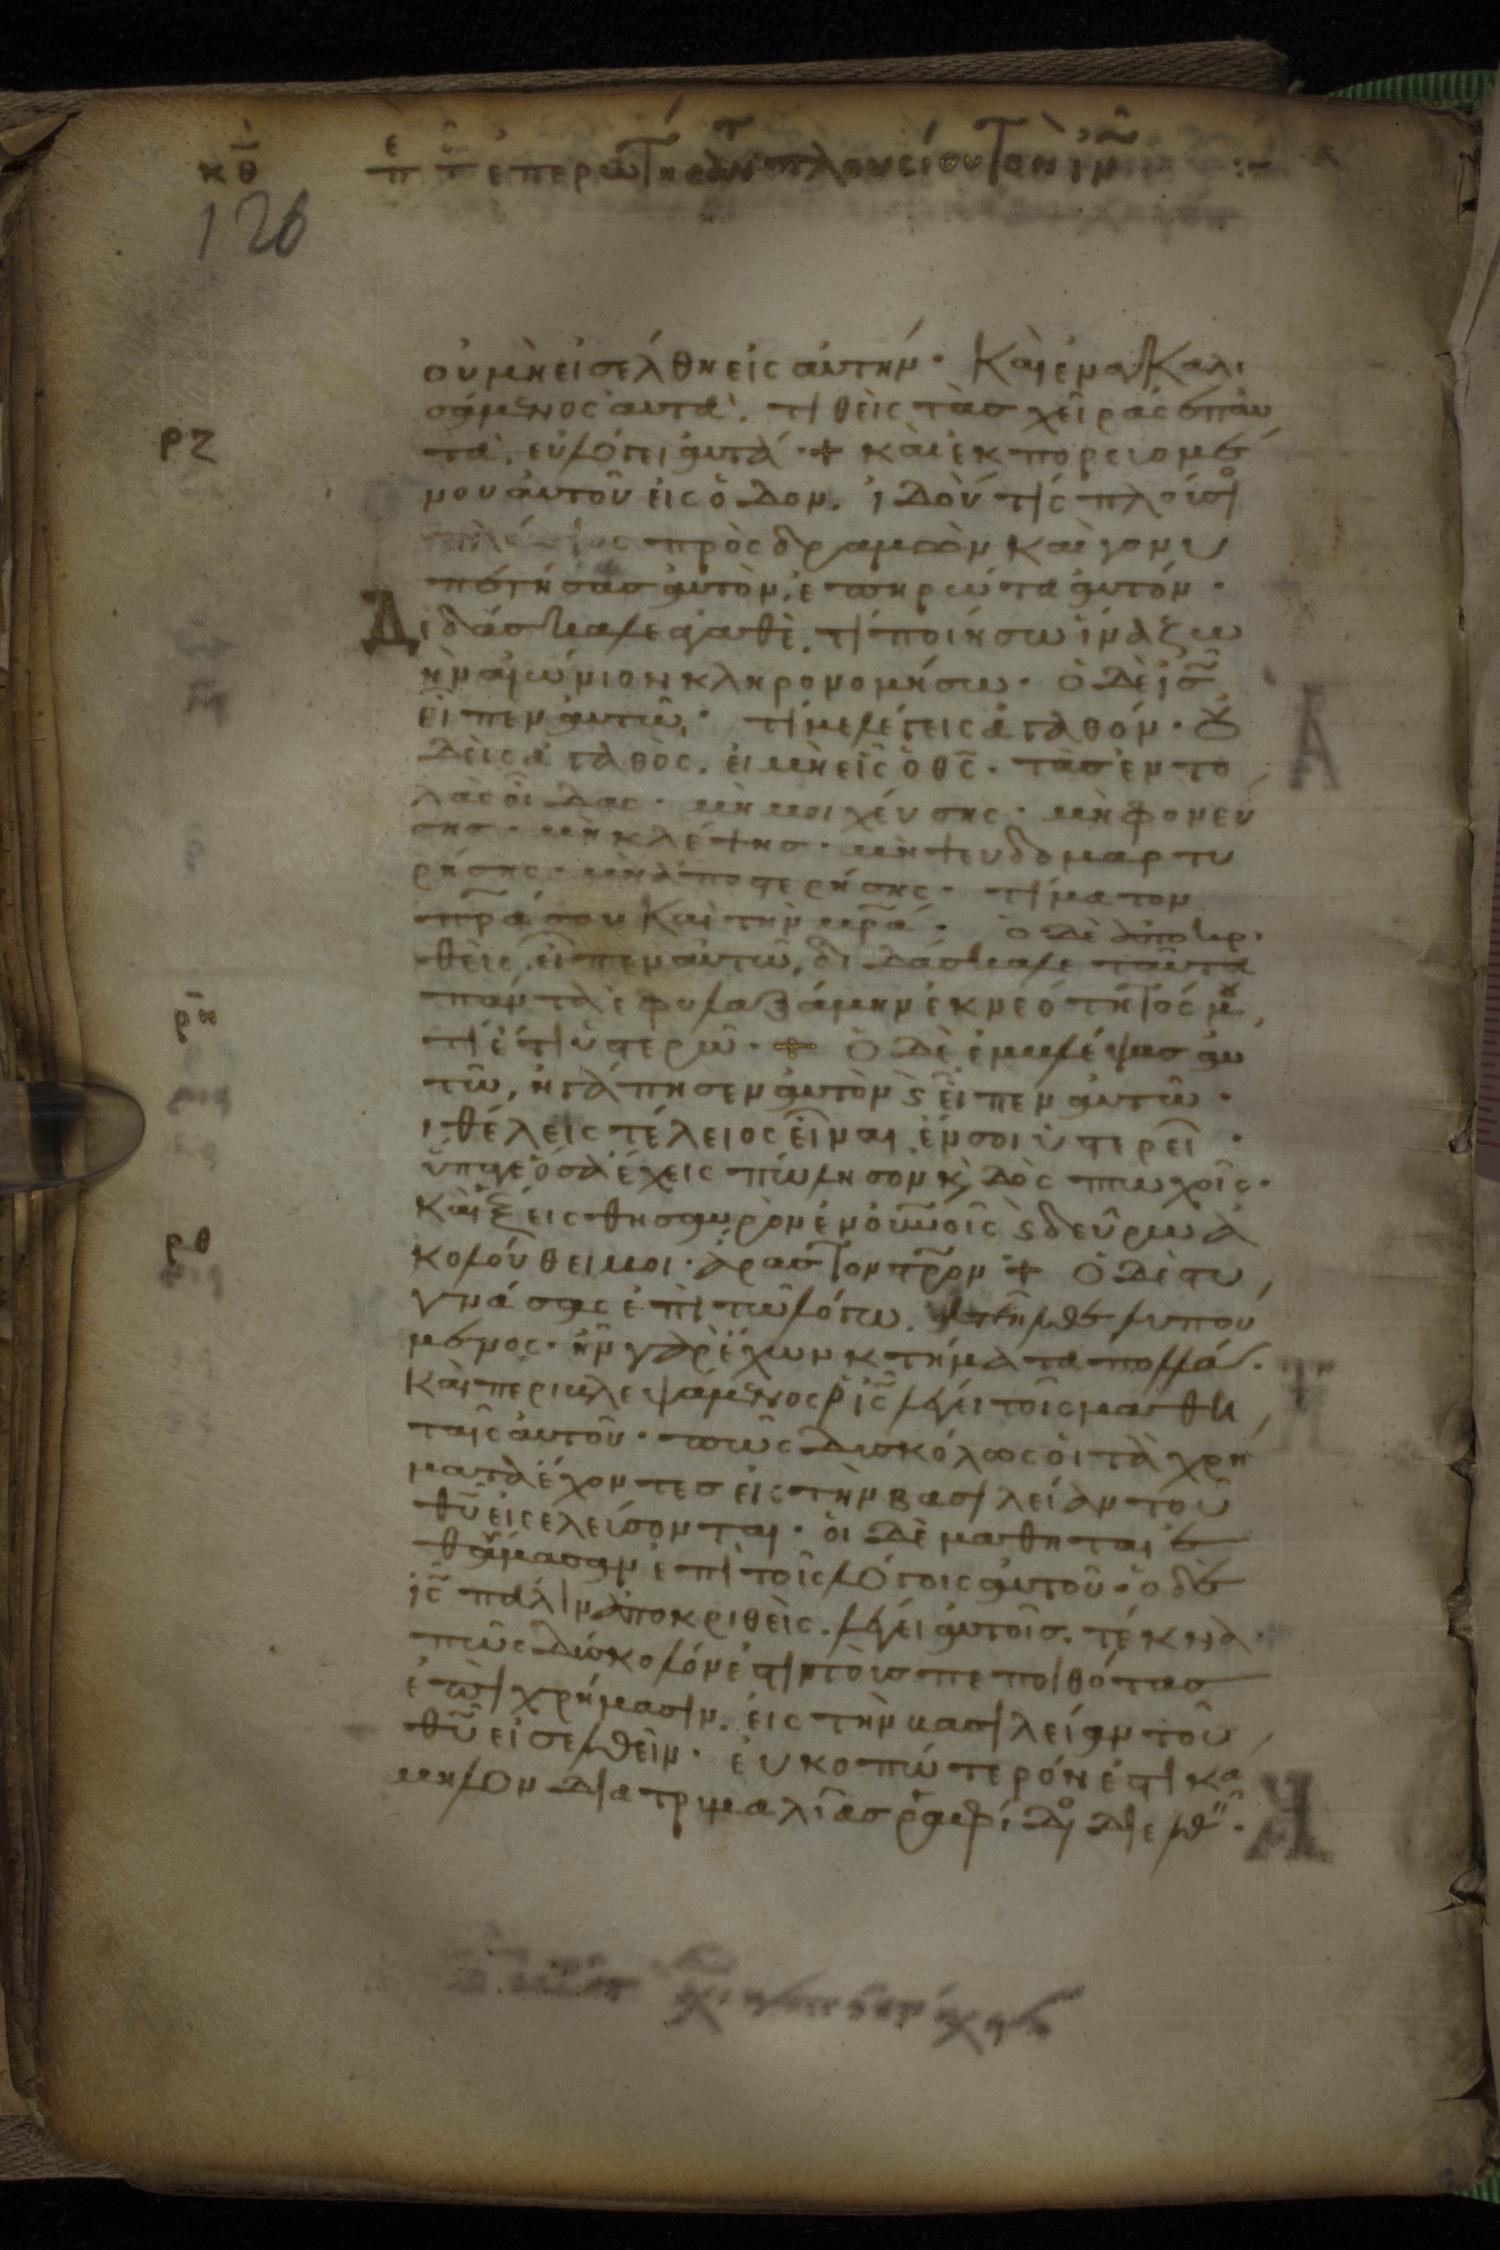 κθ
περὶ τοῦ ἐπερωτήσαντος πλουσίου τὸν ιν
126
ου μὴ εἰσέλθη εἰς αὐτήν· Καὶ ἐναγκαλι
σάμενος αὐτὰ. τιθεὶς τὰς χεῖρας ἐπ' αυ
ρζ
τὰ, εὐλόγει αὐτά· + καὶ ἐκπορευομέ
νου αὐτοῦ εἰς ὁδον. ἰδού τίς πλούσι
προσδραμὼν καὶ γονυ
πετήσας αὐτὸν, ἐπηρώτα αὐτόν·
Διδάσκαλε ἀγαθὲ. τί ποιήσω ἵνα ζω
ὴν αἰώνιον κληρονομήσω· Ὁ δὲ ις
εἶπεν αὐτῶ· τί με λέγεις ἀγαθόν· οὐ
δεὶς ἀγαθὸς. εἰ μὴ εἷς ὁ θς· τὰς ἐντο
λὰς οἶδας· μὴ μοιχέυσης· μὴ φονεύ
σης· μὴ κλέψης· μὴ ψευδομαρτυ
ρήσης· μὴ ἀποστερήσης· τίμα τον
πρα σου Καὶ τὴν μρα· ὁ δὲ ἀποκρι
θεὶς, εἶπεν αὐτῶ, διδάσκαλε ταῦτα
ρη
πάντα ἐφυλαξάμην ἐκ νεότητός μου
τί ἔτι ὑστερῶ· + Ὁ δὲ ἐμβλέψας αυ
τῶ, ἠγάπησεν αὐτὸν ϛ εἶπεν αὐτῶ·
ι θέλεις τέλειος εἶναι ἕν σοι ὑστερεῖ·
ὕπαγε ὅσα ἔχεις πώλησον κ δὸς πτωχοῖς·
Καὶ ἕξεις θησαυρὸν ἐν ουνοις ϛ δεῦρω ἀ
ρθ
κολούθει μοι· ἄρας τον στρον + Ὁ δὲ στυ
γνάσας ἐπὶ τῶ λόγω. ἀπῆλθε λυπού
μενος· ἦν γὰρ ἔχων κτήματα πολλά.
Καὶ περιβλεψάμενος ὁ ις λέγει τοῖς μαθη
ταῖς αὐτοῦ· πῶς δυσκόλως οἱ τὰ χρή
ματα ἔχοντες εἰς τὴν βασιλείαν τοῦ
θυ εἰσελεύσονται· οἱ δὲ μαθηταὶ ἐ
θαύμασαν ἐπὶ τοῖς λόγοις αὐτοῦ· ὁ δὲ
ις πάλιν ἀποκριθεὶς. λέγει αὐτοῖς. τέκνα·
πῶς δύσκολόν ἐστι τοὺς πεποιθότας
ἐπὶ χρήμασιν. εἰς τὴν βασιλείαν τοῦ
θυ εἰσελθεῖν· ἐυκοπώτερόν ἐστι κα
μηλον δια τρυμαλιᾶς ῥαφίδος διελθ·